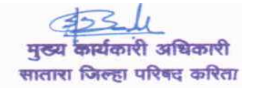 मुख्य कार्यकारी अधिकारी
सातारा जिल्हा परिषद करिता